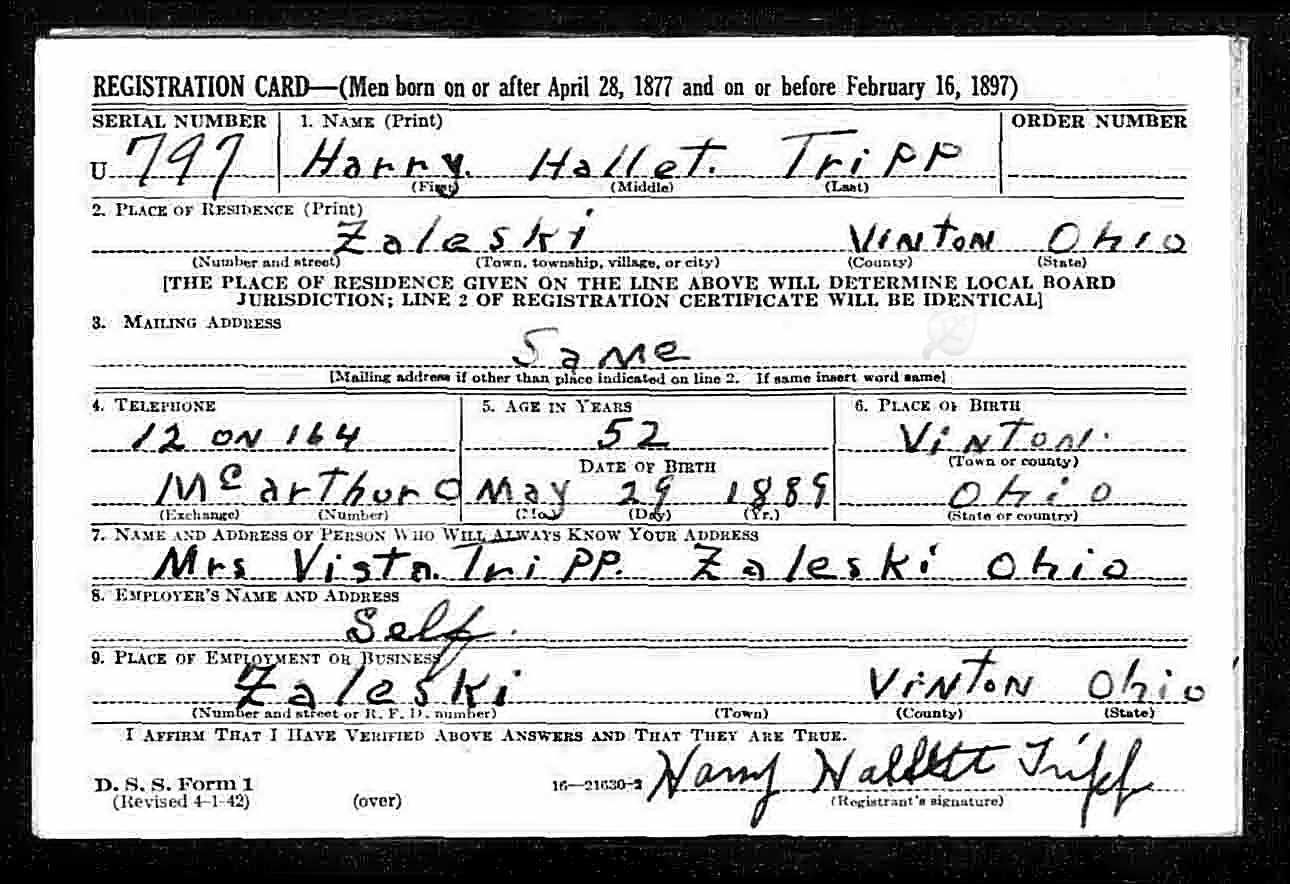 REGISTRATION CARD—(Men born on or after April 28, 1877 and on or before February 16, 1897)
SERIAL NUMBER 1. NAME (Print) ORDER NUMBER
U 797 Harry. Hallet. Tripp
(First) (Middle) (Last)
2. PLACE OF RESIDENCE (Print)
Zaleski Vinton Ohio
(Number and street) (Town, township, village, or city) (County) (State)
[THE PLACE OF RESIDENCE GIVEN ON THE LINE ABOVE WILL DETERMINE LOCAL BOARD
JURISDICTION; LINE 2 OF REGISTRATION CERTIFICATE WILL BE IDENTICAL]
3. MAILING ADDRESS
Same
[Mailing address if other than place indicated on line 2. If same insert word same]
4. TELEPHONE 5. AGE IN YEARS 6. PLACE OF BIRTH
12 on 164 52 Vinton.
DATE OF BIRTH (Town or county)
McArthur O May 29 1889 Ohio
(Exchange) (Number) (Mo.) (Day) (Yr.) (State or country)
7. NAME AND ADDRESS OF PERSON WHO WILL ALWAYS KNOW YOUR ADDRESS
Mrs Vista. Tripp. Zaleski Ohio
8. EMPLOYER'S NAME AND ADDRESS
Self.
9. PLACE OF EMPLOYMENT OR BUSINESS
Zaleski Vinton Ohio
(Number and street or R. F. D. number) (Town) (County) (State)
I AFFIRM THAT I HAVE VERIFIED ABOVE ANSWERS AND THAT THEY ARE TRUE.
D. S. S. Form 1 16—21630-2 Harry Hallett Tripp
(Revised 4-1-42) (over) (Registrant's signature)